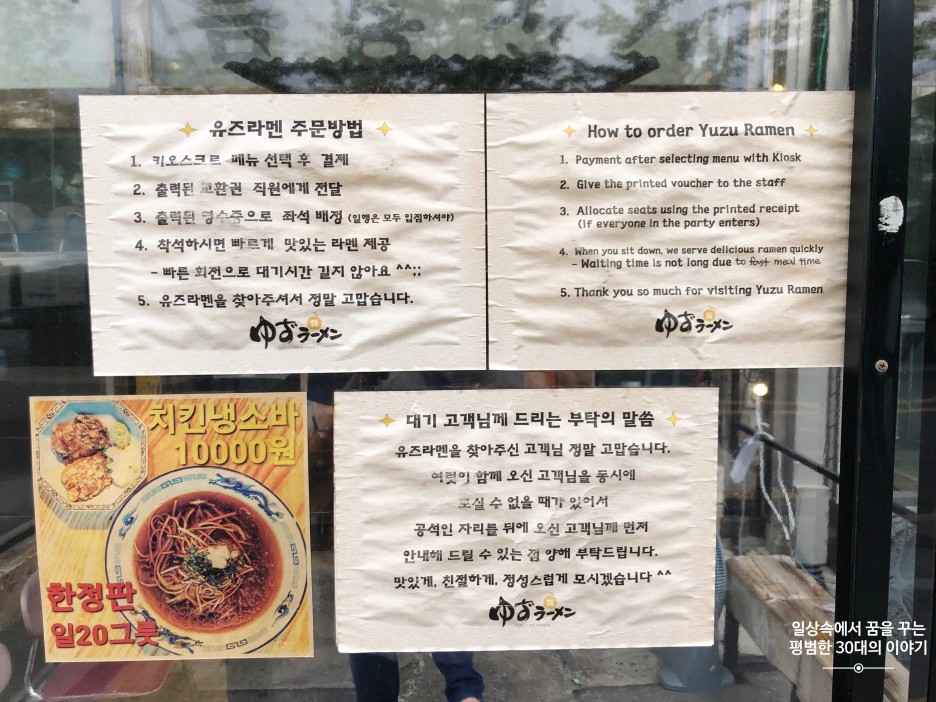 유즈라멘 주문방법
1. 키오스크로 메뉴 선택 후 결제
2. 출력된 교환권 직원에게 전달
3. 출력된 영수증으로 좌석 배정 (일행은 모두 입점하셔야)
4. 착석하시면 빠르게 맛있는 라멘 제공
- 빠른 회전으로 대기시간 길지 않아요 ^^;;
5. 유즈라멘을 찾아주셔서 정말 고맙습니다.
ゆずラーメン
How to order Yuzu Ramen
1. Payment after selecting menu with Kiosk
2. Give the printed voucher to the staff
3. Allocate seats using the printed receipt
(if everyone in the party enters)
4. When you sit down, we serve delicious ramen quickly
- Waiting time is not long due to fast meal time
5. Thank you so much for visiting Yuzu Ramen
ゆずラーメン
치킨냉소바
10000원
한정판
일20그릇
대기 고객님께 드리는 부탁의 말씀
유즈라멘을 찾아주신 고객님 정말 고맙습니다.
여럿이 함께 오신 고객님을 동시에
모실 수 없을 때가 있어서
공석인 자리를 뒤에 오신 고객님께 먼저
안내해 드릴 수 있는 점 양해 부탁드립니다.
맛있게, 친절하게, 정성스럽게 모시겠습니다 ^^
ゆずラーメン
일상속에서 꿈을 꾸는
평범한 30대의 이야기